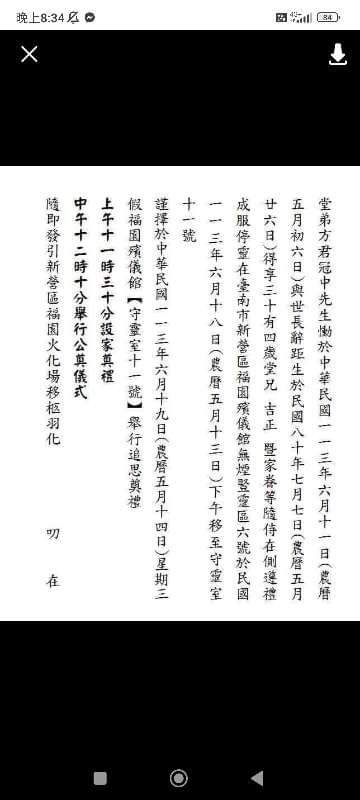 晚上8:34
84
堂弟方君冠中先生慟於中華民國一一三年六月十一日(農曆
五月初六日)與世長辭距生於民國八十年七月七日(農曆五月
廿六日)得享三十有四歲堂兄 吉正 暨家眷等隨侍在側遵禮
成服停靈在臺南市新營區福園殯儀館無煙豎靈區六號於民國
一一三年六月十八日(農曆五月十三日)下午移至守靈室
十一號
謹擇於中華民國一一三年六月十九日(農曆五月十四日)星期三
假福園殯儀館【守靈室十一號】舉行追思奠禮
上午十一時三十分設家奠禮
中午十二時十分舉行公奠儀式
隨即發引新營區福園火化場移柩羽化 叨 在